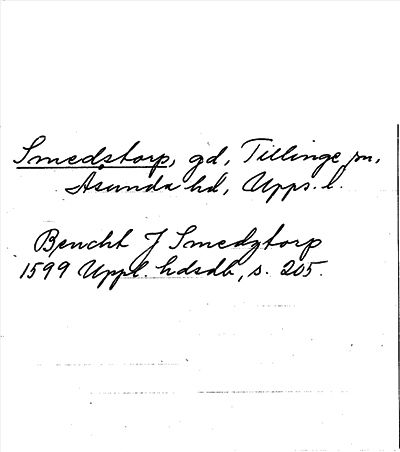 Smedstorp, gd, Tillinge sn,
Åsunda hd, Upps. l.
Bencht J Smedztorp
1599 Uppl. hdsdb, s. 205.